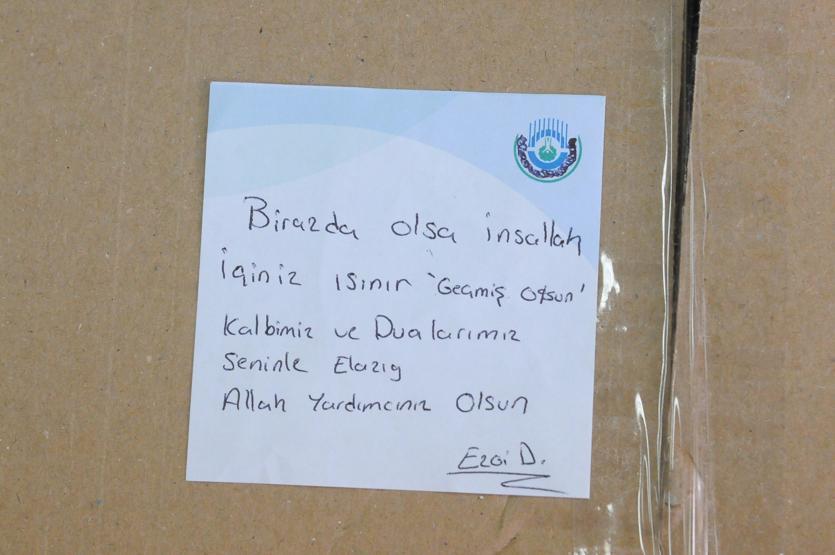 Birazda olsa insallah
İçiniz ısınır 'Geçmiş Olsun'
Kalbimiz ve Dualarımız
Seninle Elazıg
Allah Yardımcınız Olsun
Ezgi D.